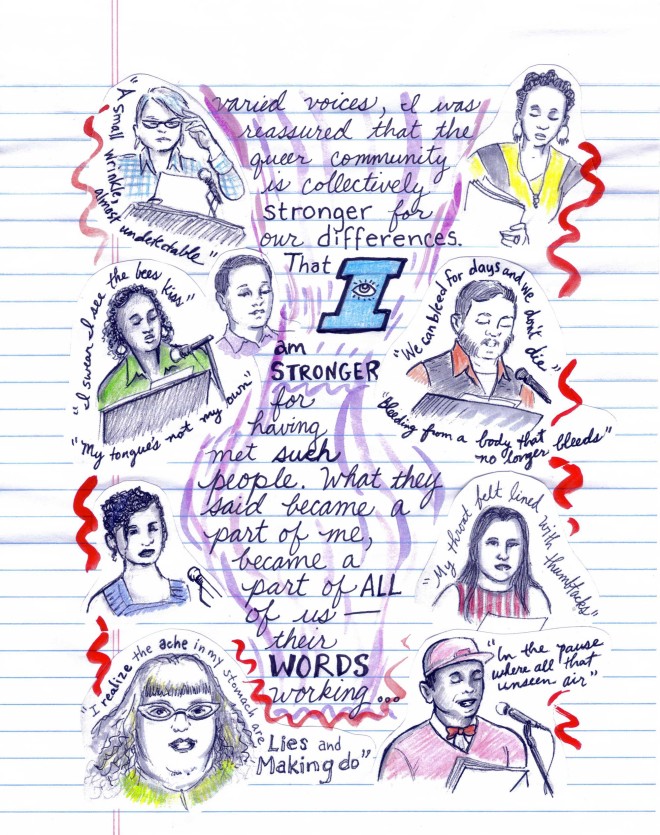 varied voices, I was
reassured that the
queer community
is collectively
stronger for
our differences.
That I
am
STRONGER
for
having
met such
people. What they
said became a
part of me,
became a
part of ALL
of us —
their
WORDS
working...
"A small wrinkle,
almost undetectable"
"I swear I see the bees kiss"
"My tongue's not my own"
"We can bleed for days and we don't die"
"Bleeding from a body that
no longer bleeds"
"My throat felt lined with thumbtacks"
"I realize the ache in my stomach are
Lies and
Making do"
"In the pause
where all that
unseen air"